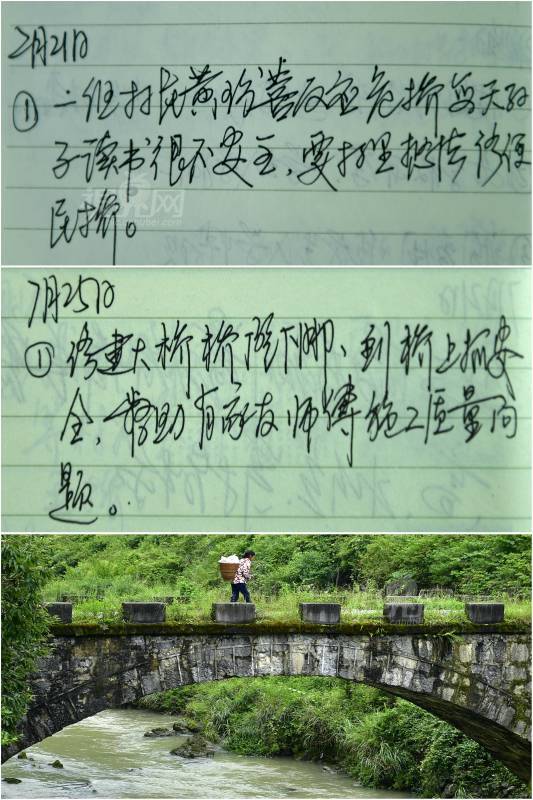 2月21日
① 二组村民黄珍善反应危桥每天孩
子读书很不安全,要村里把情修便
民桥。
7月25日
① 修建大桥桥隆下脚、到桥上抓安
全,帮助有承友师傅施工质量问
题。